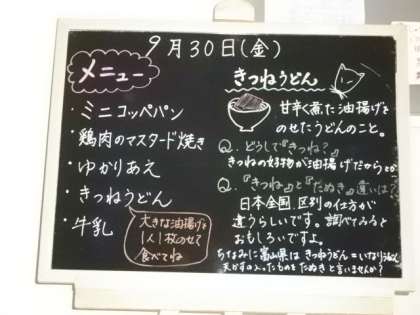 9月30日(金)
メニュー
・ミニコッペパン
・鶏肉のマスタード焼き
・ゆかりあえ
・きつねうどん
・牛乳
大きな油揚げを
1人1枚のせて
食べてね
きつねうどん
甘辛く煮た油揚げを
のせたうどんのこと。
Q.どうして『きつね?』
きつねの好物が油揚げだからとか
Q.『きつね』と『たぬき』違いは?
日本全国、区別の仕方が
違うらしいです。調べてみると
おもしろいですよ。
ちなみに富山県は きつねうどん=いなりうどん
天かすの入ったものを たぬき と言いませんか?